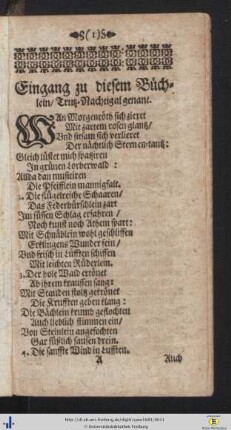 (1)
Eingang zu diesem Büch-
lein/ Trutz-Nachtigal genant.
WAn Morgenröth sich zieret
Mit zartem rosen glantz/
Vnd sitsam sich verlieret
Der nächtlich Sternen-tantz:
Gleich lüstet mich spatziren
In grünen Lorberwald:
Allda dan musiciren
Die Pfeifflein mannigfalt.
2. Die flügelreiche Schaaren/
Das Federbürschlein zart
Im süssen Schlag erfahren/
Noch kunst noch Athem spart:
Mit Schnäblein wohl geschliffen
Erklingens Wunder fein/
Vnd frisch in Lüfften schiffen
Mit leichten Rüderlein.
3. Der hole Wald ertönet
Ab ihrem krausen sang:
Mit Stauden stoltz gekrönet
Die Krufften geben klang:
Die Bächlein krumb geflochten
Auch lieblich stimmen ein/
Von Steinlein angefochten
Gar süßlich sausen drein.
4. Die sanffte Wind in Lufften.
A
Auch